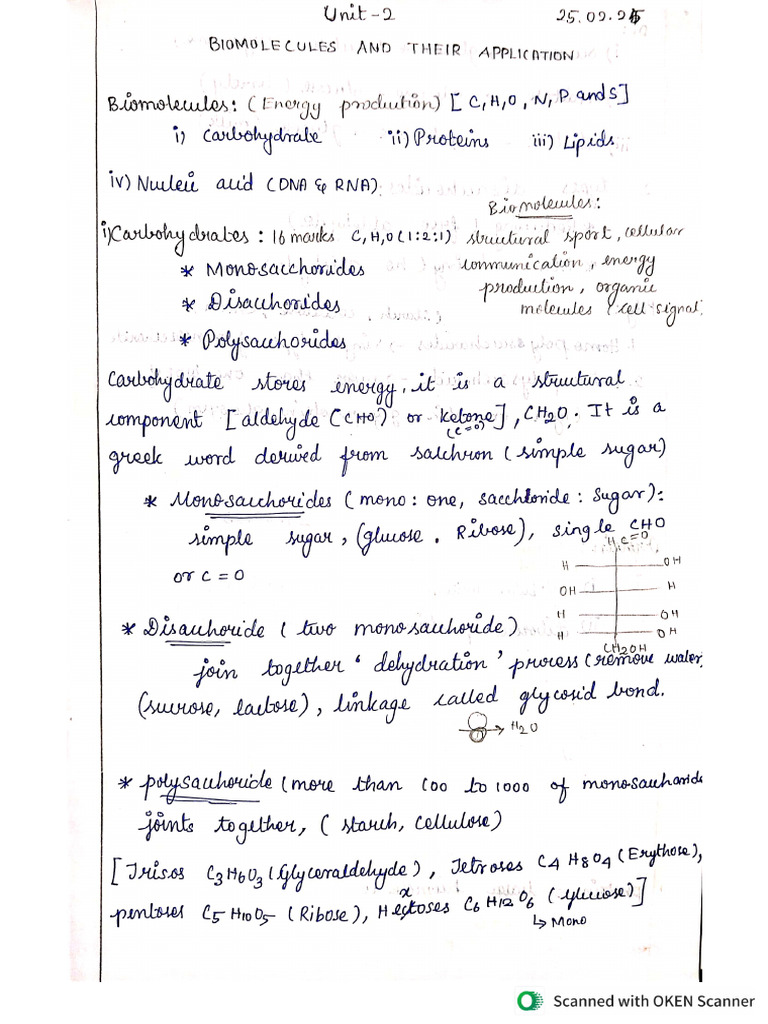 Unit-2 25.02.25
BIOMOLECULES AND THEIR APPLICATION
Biomolecules: (Energy prodution) [C,H,O, N, P and S]
i) Carbohydrate ii) Proteins iii) Lipids
iv) Nuclei acid (DNA & RNA)
Biomolecules:
i) Carbohydrates: 16 marks C,H,O (1:2:1) structural sport, cellular
* Monosacchorides communication, energy
production, organic
* Disacchorides molecules (cell signal)
* Polysacchorides
Carbohydrate stores energy, it is a structural
component [aldehyde (CHO) or ketone], CH2O. It is a
(C=O)
greek word derived from salchron (simple sugar)
* Monosacchorides (mono: one, sacchloride: Sugar):
simple sugar, (glucose. Ribose), single CHO
or C=O
H C=O
H OH
OH H
H OH
H OH
CH2OH
* Disacchoride (two monosacchoride)
join together 'dehydration' process (remove water
(sucrose, lactose), linkage called glycosid bond.
H2O
* polysacchoride (more than 100 to 1000 of monosaccharide
joints together, (starch, cellulose)
[Trisos C3H6O3 (Glyceraldehyde), Tetroses C4H8O4 (Erythose),
pentoses C5H10O5 (Ribose), Hexoses C6H12O6 (Glucose)]
↳ Mono
Scanned with OKEN Scanner